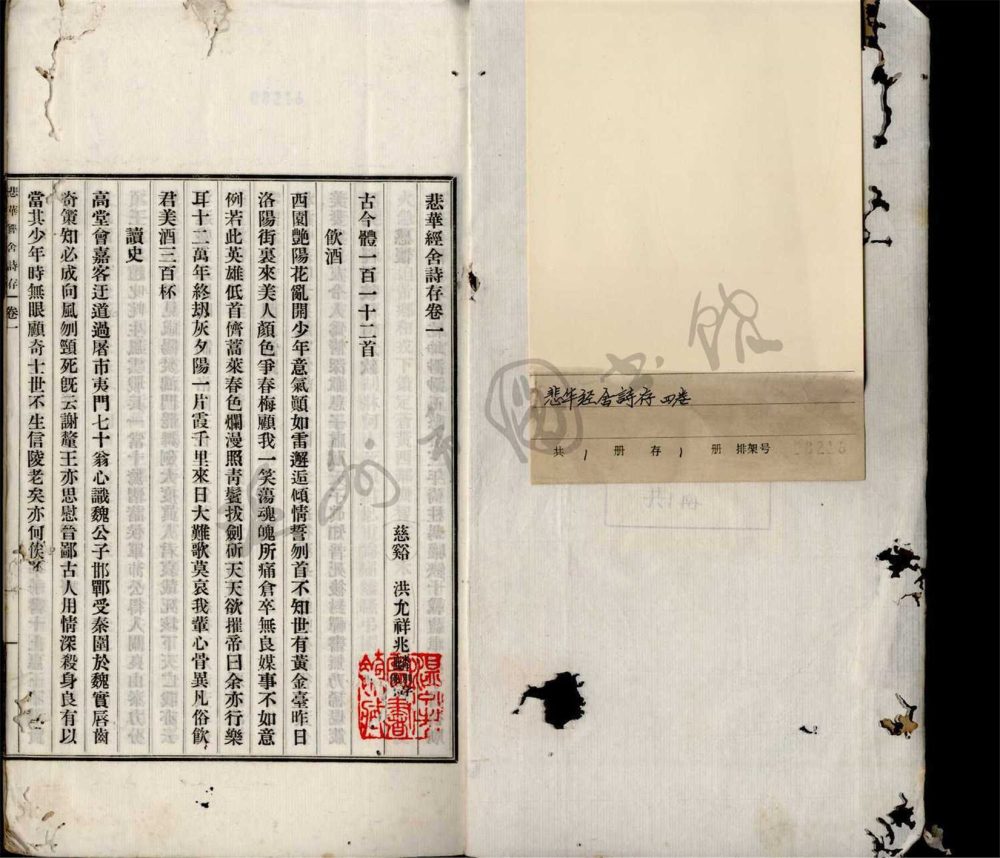 悲華經舍詩存卷一
慈谿 洪允祥兆
古今體一百一十二首
飲酒
西園艷陽花亂開少年意氣顫如雷邂逅傾情誓刎首不知世有黃金臺昨日
洛陽街裏來美人顏色爭春梅顧我一笑蕩魂魄所痛倉卒無良媒事不如意
例若此英雄低首儕蒿萊春色爛漫照青鬢拔劍斫天天欲摧帝曰余亦行樂
耳十二萬年終刼灰夕陽一片霞千里來日大難歌莫哀我輩心骨異凡俗飲
君美酒三百杯
讀史
高堂會嘉客迂道過屠市夷門七十翁心識魏公子邯鄲受秦圍於魏實唇齒
奇策知必成向風刎頸死旣云謝鼇王亦思慰晉鄙古人用情深殺身良有以
當其少年時無眼顧奇士世不生信陵老矣亦何俟
悲華經舍詩存 卷一
悲华经舍詩存 四卷
共 1 册 存 1 册 排架号
共1冊